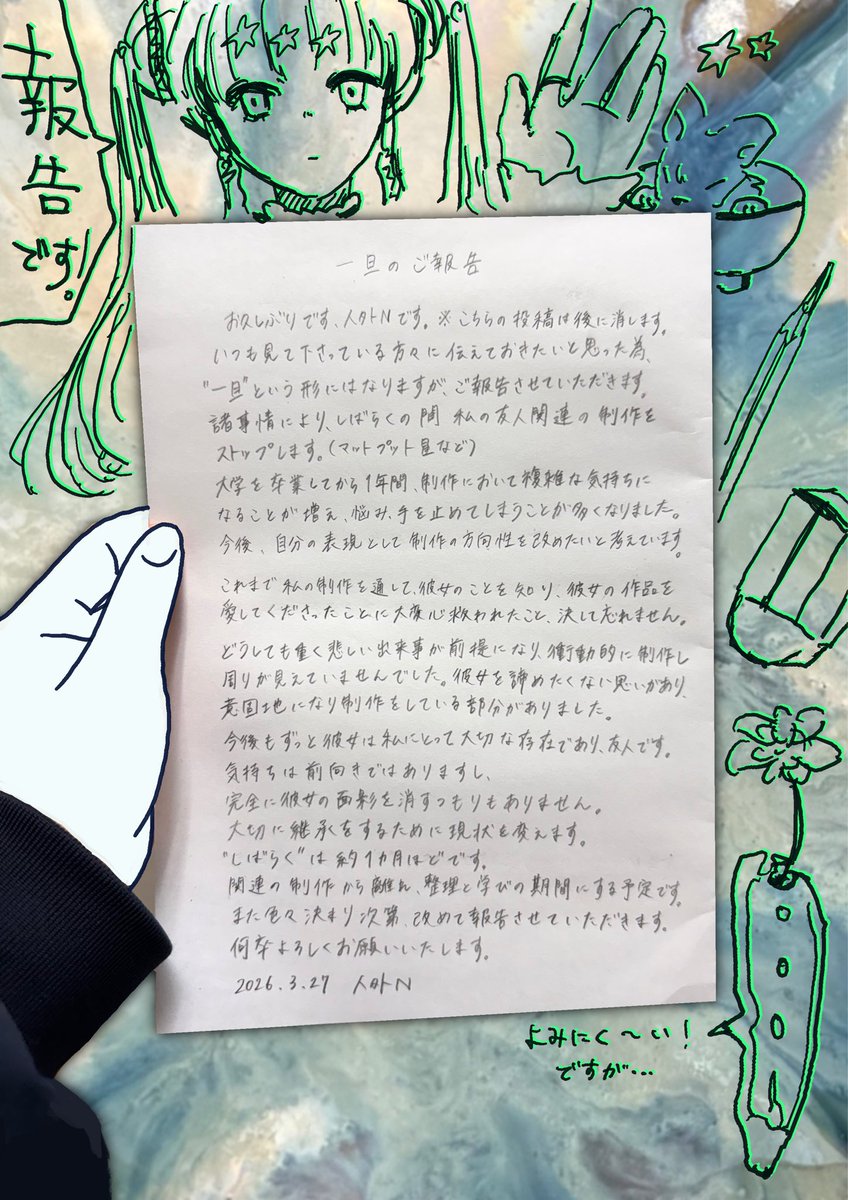 報告
です!。
一旦のご報告
お久しぶりです、人外Nです。※こちらの投稿は後に消します。
いつも見て下さっている方々に伝えておきたいと思った為、
"一旦"という形にはなりますが、ご報告させていただきます。
諸事情により、しばらくの間 私の友人関連の制作を
ストップします。(マットプット星など)
大学を卒業してから1年間、制作において複雑な気持ちに
なることが増え、悩み、手を止めてしまうことが多くなりました。
今後、自分の表現として制作の方向性を改めたいと考えています。
これまで私の制作を通して、彼女のことを知り、彼女の作品を
愛してくださったことに大変心救われたこと、決して忘れません。
どうしても重く悲しい出来事が前提になり、衝動的に制作し
周りが見えていませんでした。彼女を諦めたくない思いがあり、
意固地になり制作をしている部分がありました。
今後もずっと彼女は私にとって大切な存在であり、友人です。
気持ちは前向きではありますし、
完全に彼女の面影を消すつもりもありません。
大切に継承をするために現状を変えます。
"しばらく"は約1カ月ほどです。
関連の制作から離れ、整理と学びの期間にする予定です。
また色々決まり次第、改めて報告させていただきます。
何卒よろしくお願いいたします。
2026.3.27 人外N
よみにく〜い!
ですが…